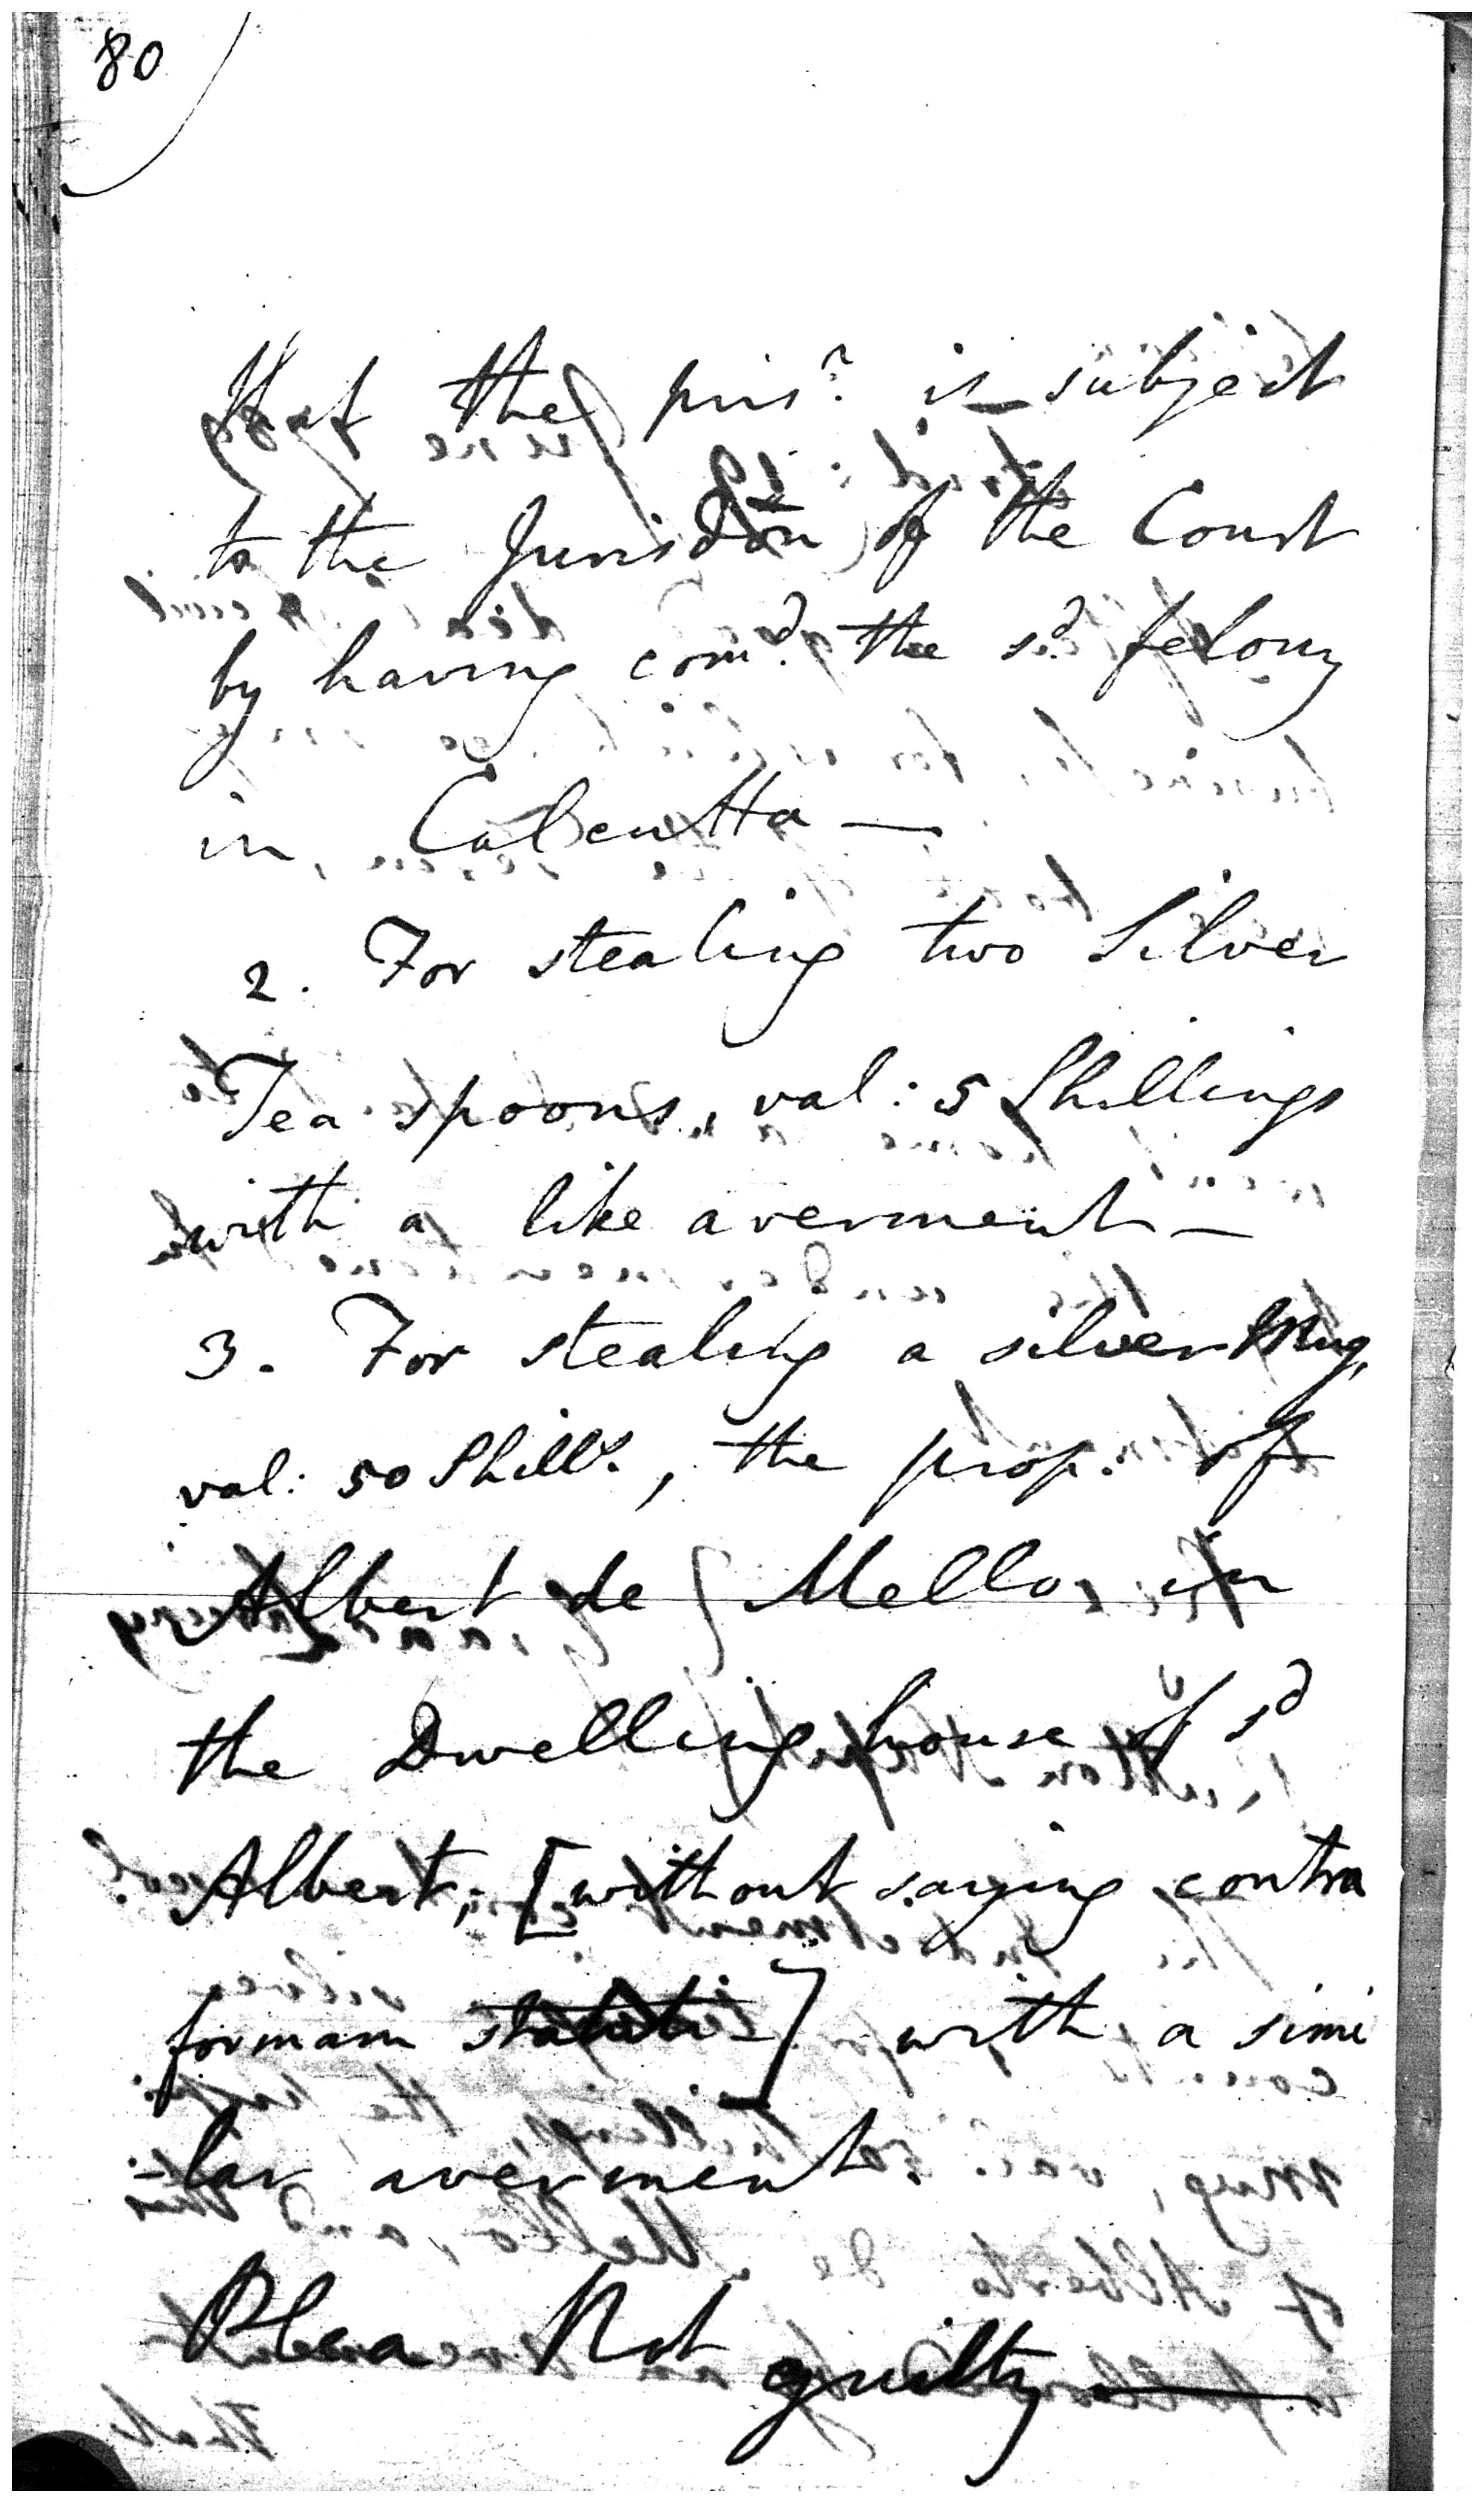 80
that the pris.r is subject
to the Jurisdōn of the Court
by having com.d the s.d felony
in Calcutta —
2. For stealing two Silver
Tea spoons, val: 5 Shillings
with a like averment —
3. For stealing a silver Mug,
val: 50 Shills., the prop. of
Albert de Mello, in
the Dwelling house of s.d
Albert; [without saying contra
formam statuti] with a simi
-lar averment.
Plea Not guilty —